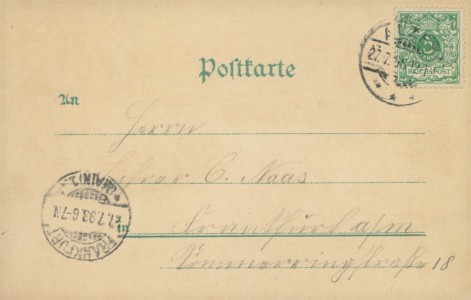 Postkarte
An
Herrn
Lehrer C. Naas
in Frankfurt a/m
Sömmerringstraße 18
5
REICHSPOST
27.7.98
FRANKFURT
(MAIN)
7.7.98.6-7N.